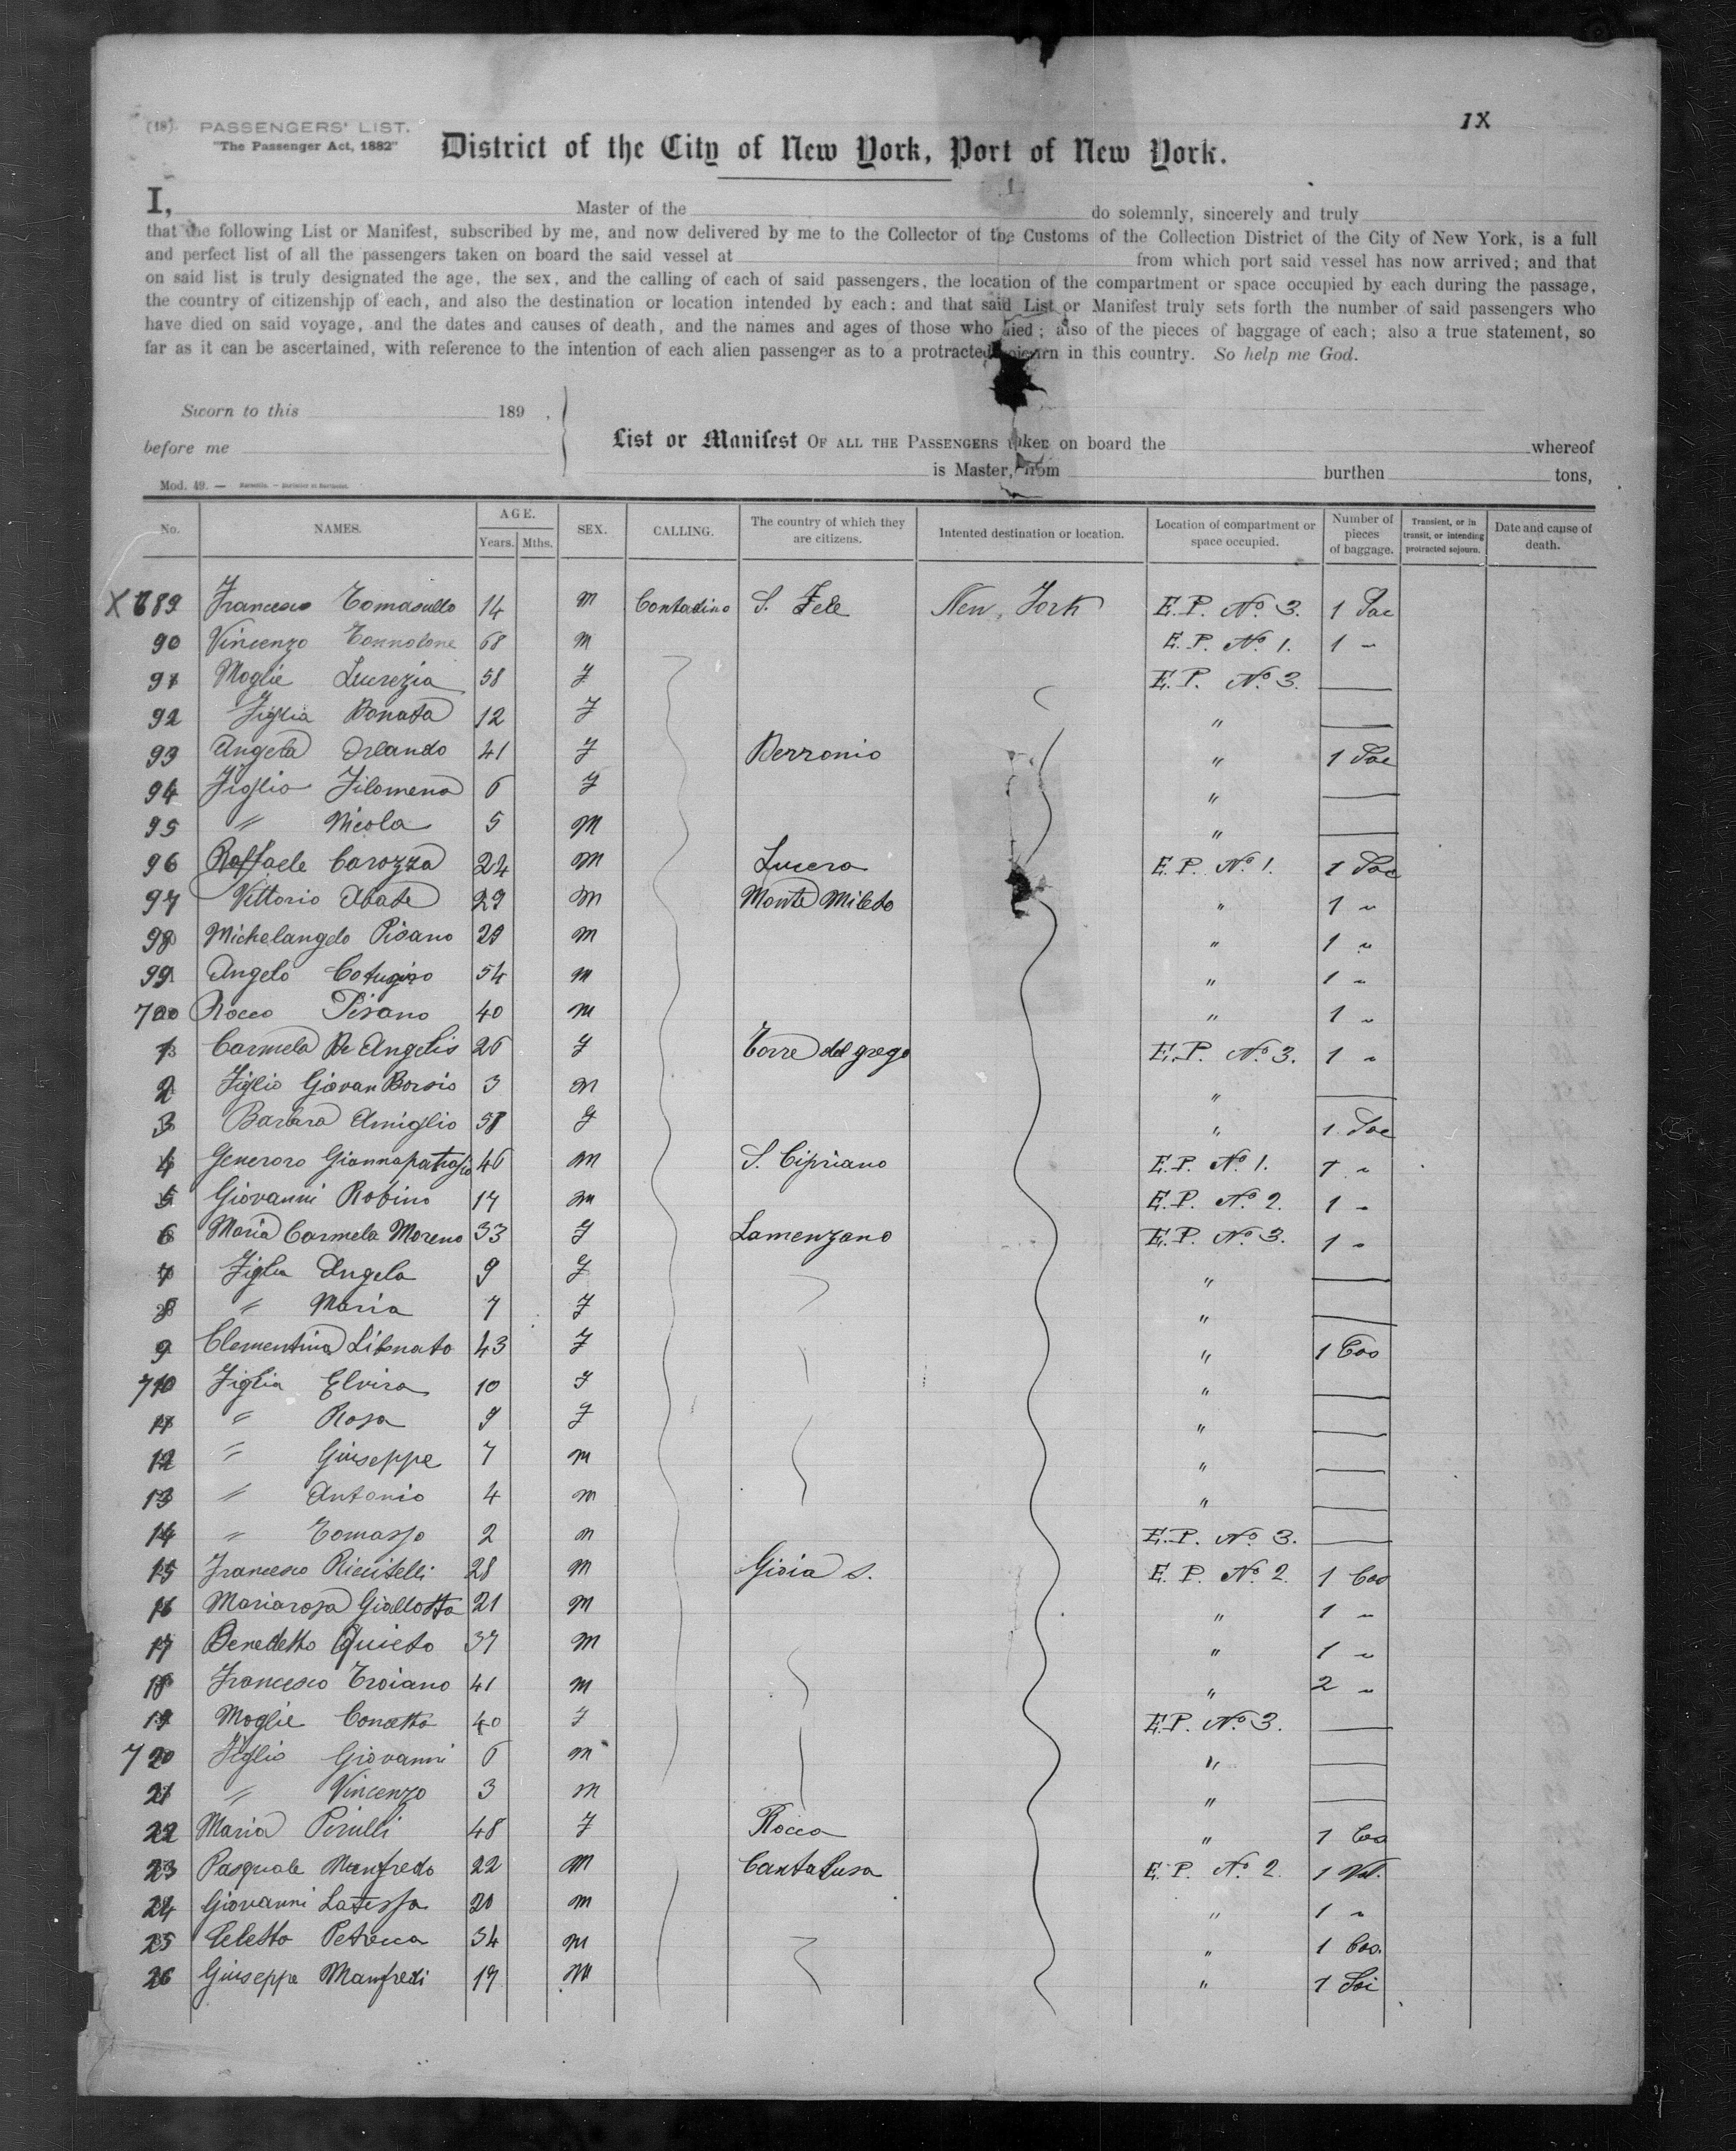 1X
(18). PASSENGERS' LIST.
"The Passenger Act, 1882"
District of the City of New York, Port of New York.
I, Master of the do solemnly, sincerely and truly
that the following List or Manifest, subscribed by me, and now delivered by me to the Collector of the Customs of the Collection District of the City of New York, is a full
and perfect list of all the passengers taken on board the said vessel at from which port said vessel has now arrived; and that
on said list is truly designated the age, the sex, and the calling of each of said passengers, the location of the compartment or space occupied by each during the passage,
the country of citizenship of each, and also the destination or location intended by each; and that said List or Manifest truly sets forth the number of said passengers who
have died on said voyage, and the dates and causes of death, and the names and ages of those who died; also of the pieces of baggage of each; also a true statement, so
far as it can be ascertained, with reference to the intention of each alien passenger as to a protracted sojourn in this country. So help me God.
Sworn to this 189 .
before me
List or Manifest OF ALL THE PASSENGERS taken on board the whereof
is Master, from burthen tons,
Mod. 49. —
No. NAMES. AGE. Years. Mths. SEX. CALLING. The country of which they are citizens. Intented destination or location. Location of compartment or space occupied. Number of pieces of baggage. Transient, or in transit, or intending protracted sojourn. Date and cause of death.
X 689 Francesco Tomasullo 14 M Contadino S. Fele New York E.P. No 3. 1 Sac
90 Vincenzo 68 M E.P. No 1. 1 "
91 Moglie Lucrezia 58 F E.P. No 3.
92 Figlia Donata 12 F "
93 Angela Orlando 41 F Berronio " 1 Sac
94 Figlio Filomena 6 F "
95 " Nicola 5 M "
96 Raffaele Carozza 24 M Lucera E.P. No 1. 1 Sac
97 Vittorio Abate 29 M Monte Mileto " 1 "
98 Michelangelo Pisano 29 M " 1 "
99 Angelo Cotugno 54 M " 1 "
700 Rocco Pisano 40 M " 1 "
1 Carmela De Angelis 26 F Torre del grego E.P. No 3. 1 "
2 Figlio Giovan Borsio 3 M "
3 Barbara Amiglio 58 F " 1 Sac
4 Generoro Giannapatrasio 46 M S. Cipriano E.P. No 1. 1 "
5 Giovanni Robino 17 M E.P. No 2. 1 "
6 Maria Carmela Moreno 33 F Lamenzano E.P. No 3. 1 "
7 Figlia Angela 9 F "
8 " Maria 7 F "
9 Clementina Libonato 43 F " 1 Coo
710 Figlia Elvira 10 F "
11 " Rosa 9 F "
12 " Giuseppe 7 M "
13 " Antonio 4 M "
14 " Tomasso 2 M E.P. No 3.
15 Francesco Riccitelli 28 M Gioia S. E.P. No 2. 1 Coo
16 Mariarosa Giallotta 21 M " 1 "
17 Benedetto Quieto 37 M " 1 "
18 Francesco Troiano 41 M " 2 "
19 Moglie Concetta 40 F E.P. No 3.
720 Figlio Giovanni 6 M "
21 " Vincenzo 3 M "
22 Maria Pirulli 48 F Rocca " 1 Coo
23 Pasquale Manfredo 22 M Cantalusa E.P. No 2. 1 Val.
24 Giovanni Latessa 20 M " 1 "
25 Celetto Petrecca 34 M " 1 Coo.
26 Giuseppe Manfredi 19 M " 1 Sci